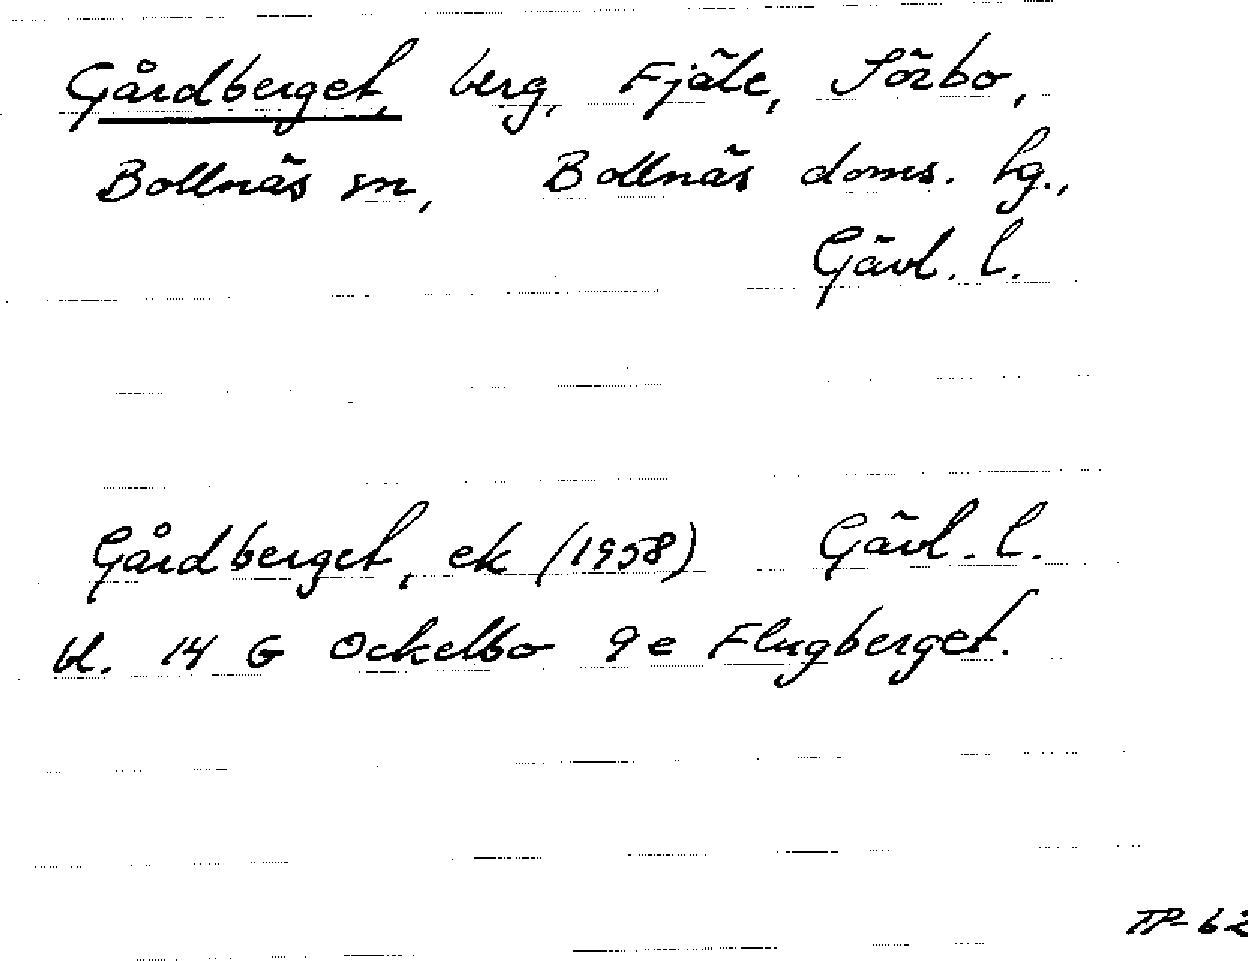 Gårdberget, berg, Fjäle, Sörbo,
Bollnäs sn, Bollnäs doms. hg.,
Gävl. l.
Gårdberget, ek (1958) Gävl. l.
bl. 14 G Ockelbo 9e Flugberget.
TP-62